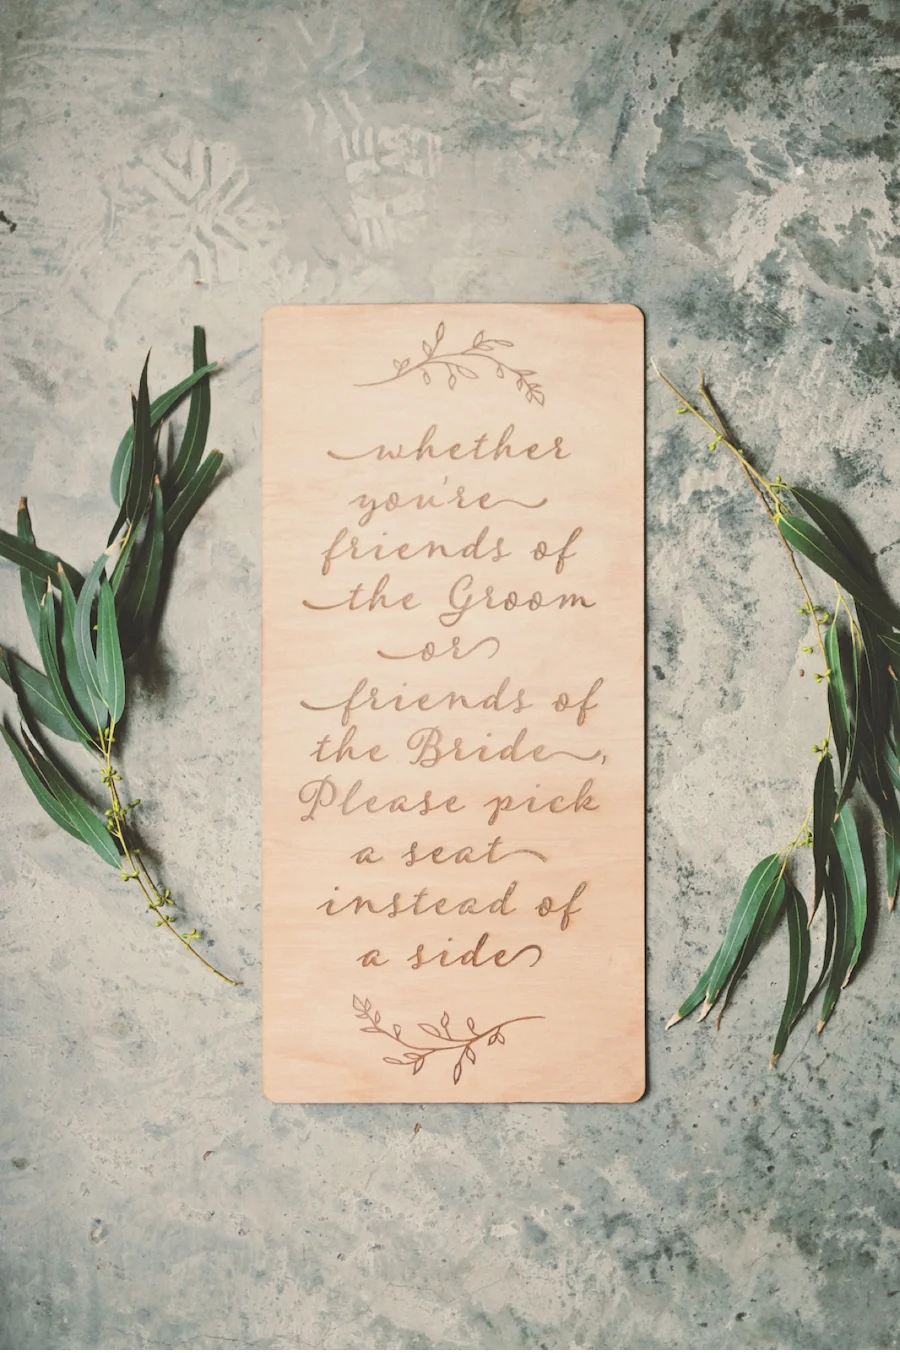 whether
you're
friends of
the Groom
or
friends of
the Bride,
Please pick
a seat
instead of
a side